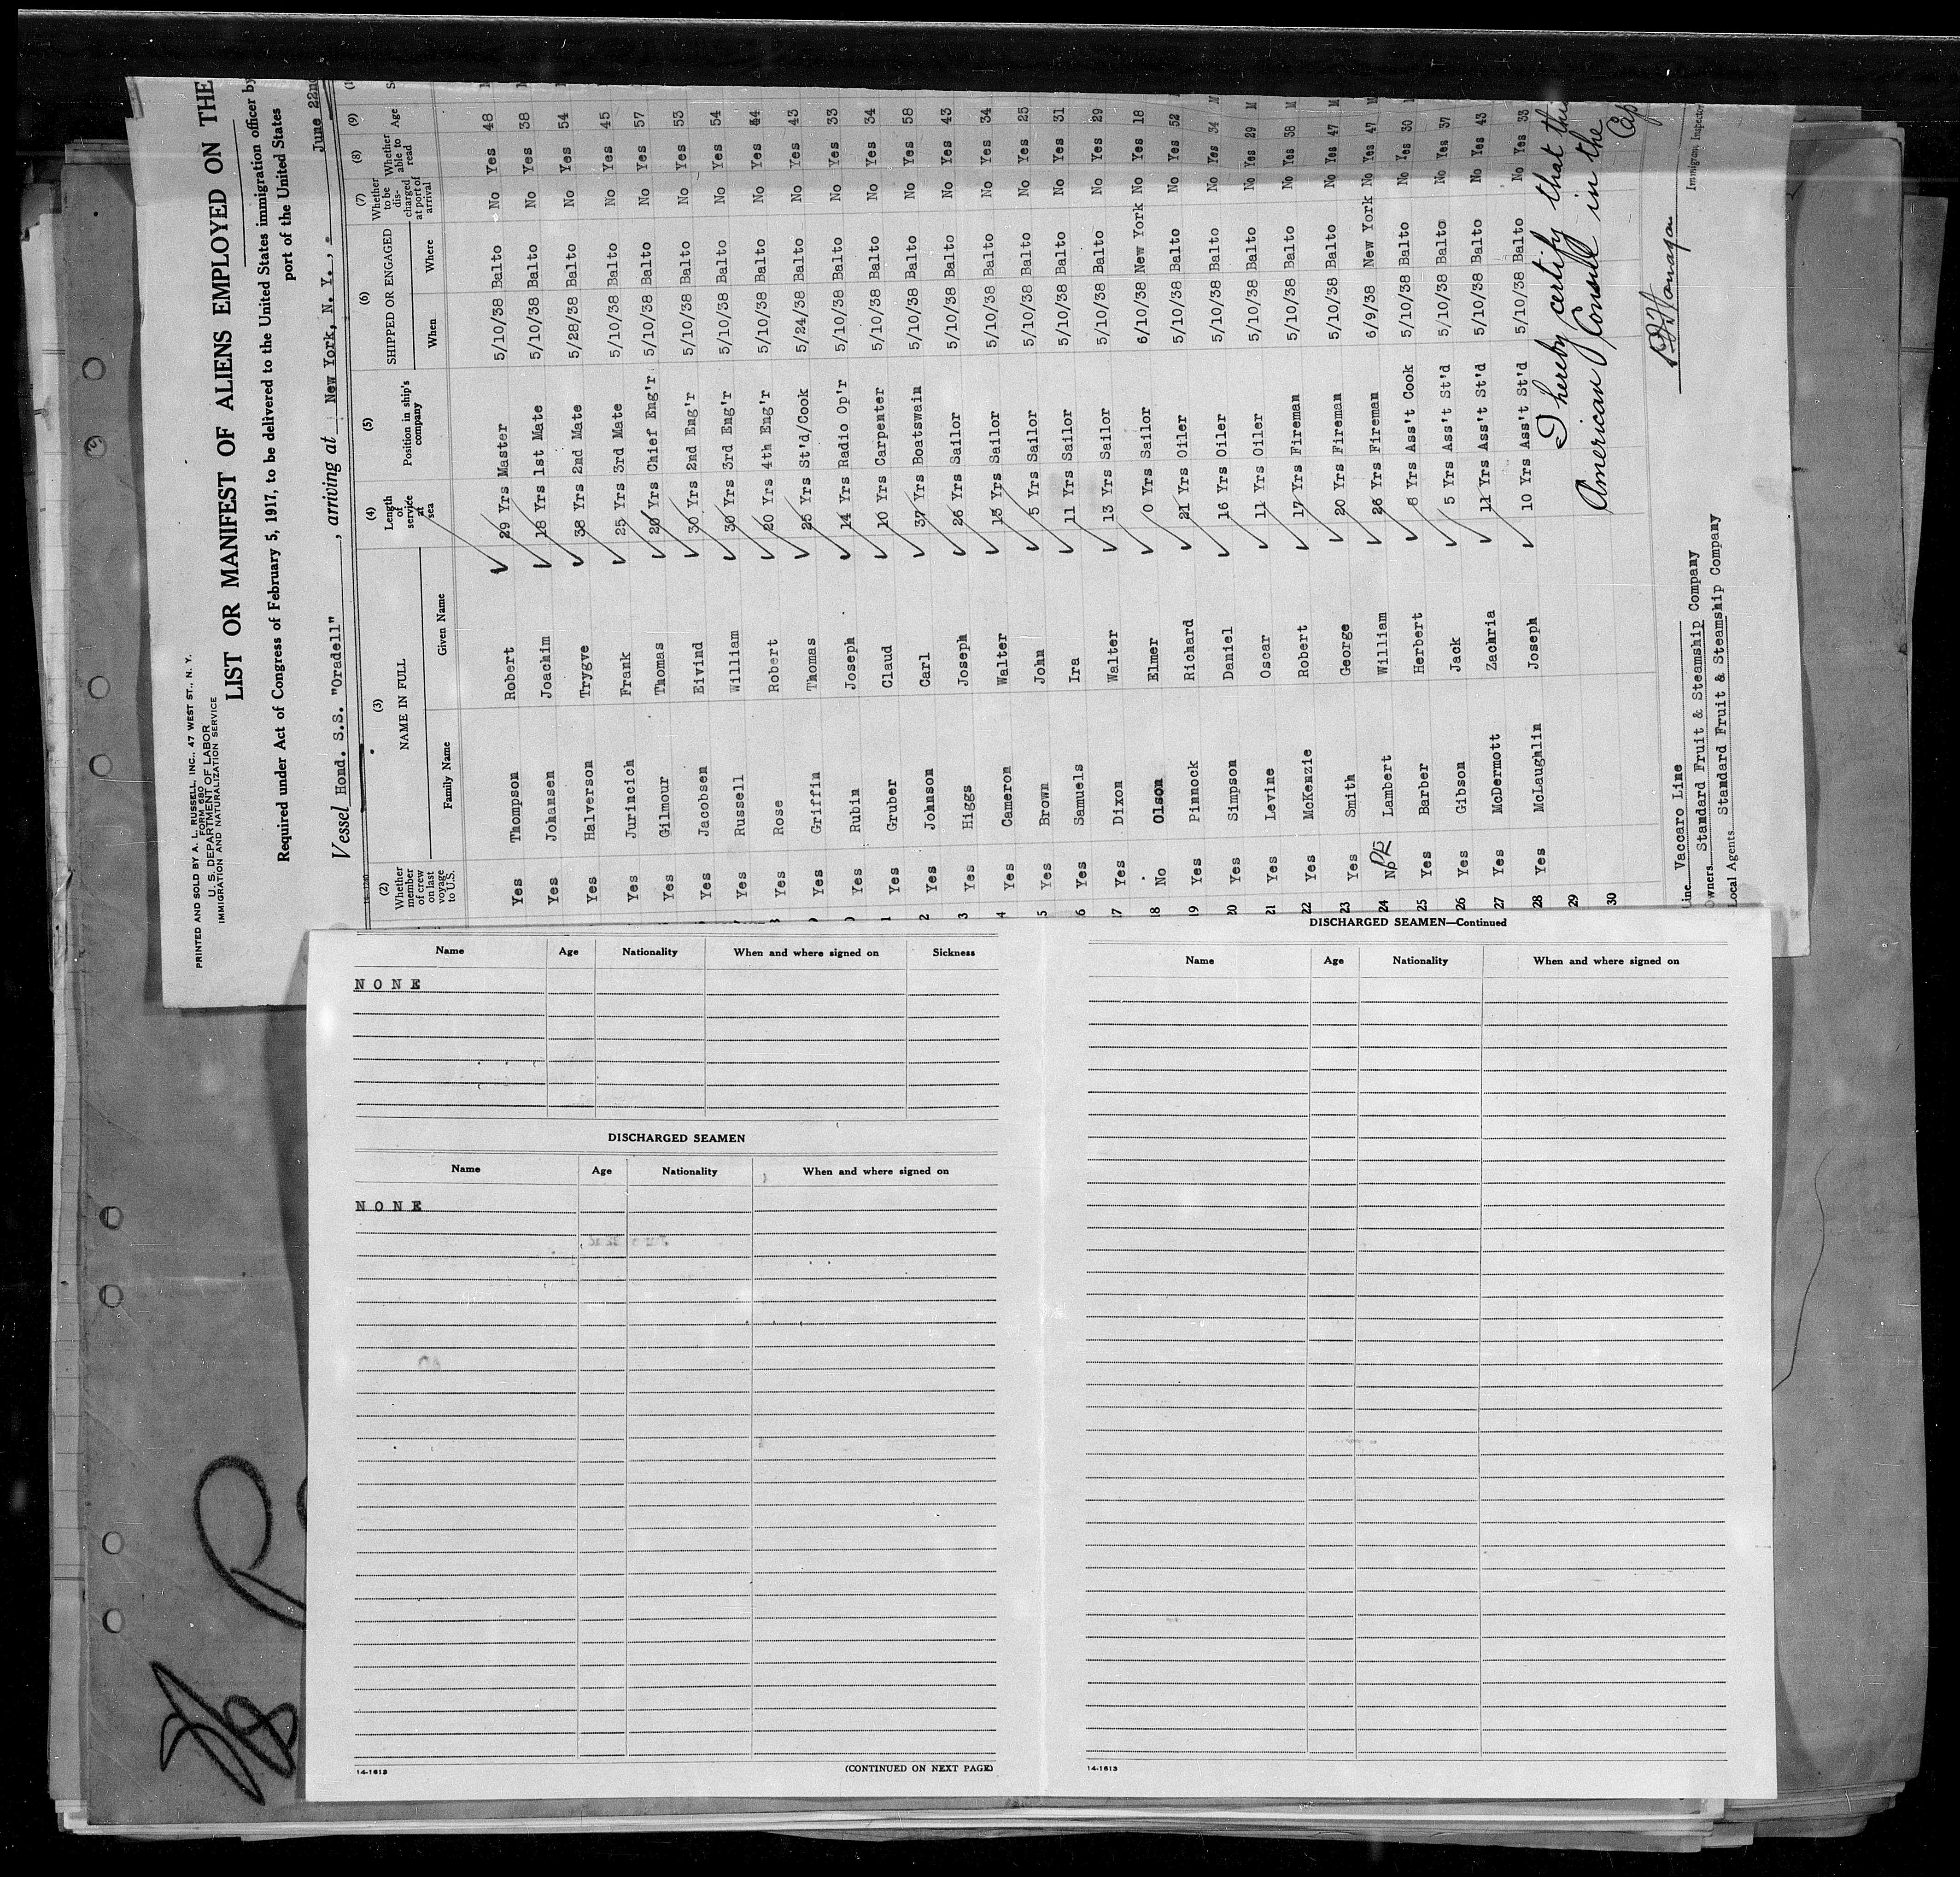 PRINTED AND SOLD BY A. L. RUSSELL, INC., 47 WEST ST., N. Y.
FORM 680
U. S. DEPARTMENT OF LABOR
IMMIGRATION AND NATURALIZATION SERVICE
LIST OR MANIFEST OF ALIENS EMPLOYED ON THE
Required under Act of Congress of February 5, 1917, to be delivered to the United States immigration officer by
port of the United States
Vessel Hond. S.S. "Oradell", arriving at New York, N. Y., June 22nd
(2) Whether member of crew on last voyage to U.S. (3) NAME IN FULL Family Name Given Name (4) Length of service at sea (5) Position in ship's company (6) SHIPPED OR ENGAGED When Where (7) Whether to be discharged at port of arrival (8) Whether able to read (9) Age
Yes Thompson Robert 29 Yrs Master 5/10/38 Balto No Yes 48
Yes Johansen Joachim 18 Yrs 1st Mate 5/10/38 Balto No Yes 38
Yes Halverson Trygve 38 Yrs 2nd Mate 5/28/38 Balto No Yes 54
Yes Jurincich Frank 25 Yrs 3rd Mate 5/10/38 Balto No Yes 45
Yes Gilmour Thomas 20 Yrs Chief Eng'r 5/10/38 Balto No Yes 57
Yes Jacobsen Eivind 30 Yrs 2nd Eng'r 5/10/38 Balto No Yes 53
Yes Russell William 30 Yrs 3rd Eng'r 5/10/38 Balto No Yes 54
8 Yes Rose Robert 20 Yrs 4th Eng'r 5/10/38 Balto No Yes 54
9 Yes Griffin Thomas 25 Yrs St'd/Cook 5/24/38 Balto No Yes 43
0 Yes Rubin Joseph 14 Yrs Radio Op'r 5/10/38 Balto No Yes 33
1 Yes Gruber Claud 10 Yrs Carpenter 5/10/38 Balto No Yes 34
2 Yes Johnson Carl 37 Yrs Boatswain 5/10/38 Balto No Yes 58
3 Yes Higgs Joseph 26 Yrs Sailor 5/10/38 Balto No Yes 43
4 Yes Cameron Walter 13 Yrs Sailor 5/10/38 Balto No Yes 34
5 Yes Brown John 5 Yrs Sailor 5/10/38 Balto No Yes 25
6 Yes Samuels Ira 11 Yrs Sailor 5/10/38 Balto No Yes 31
17 Yes Dixon Walter 13 Yrs Sailor 5/10/38 Balto No Yes 29
18 No Olson Elmer 0 Yrs Sailor 6/10/38 New York No Yes 18
19 Yes Pinnock Richard 21 Yrs Oiler 5/10/38 Balto No Yes 52
20 Yes Simpson Daniel 16 Yrs Oiler 5/10/38 Balto No Yes 34 M
21 Yes Levine Oscar 11 Yrs Oiler 5/10/38 Balto No Yes 29 M
22 Yes McKenzie Robert 17 Yrs Fireman 5/10/38 Balto No Yes 38 M
23 Yes Smith George 20 Yrs Fireman 5/10/38 Balto No Yes 47 M
24 Lambert William 26 Yrs Fireman 6/9/38 New York No Yes 47 M
25 Yes Barber Herbert 8 Yrs Ass't Cook 5/10/38 Balto No Yes 30
26 Yes Gibson Jack 5 Yrs Ass't St'd 5/10/38 Balto No Yes 37
27 Yes McDermott Zachria 11 Yrs Ass't St'd 5/10/38 Balto No Yes 43
28 Yes McLaughlin Joseph 10 Yrs Ass't St'd 5/10/38 Balto No Yes 33
29
30
I hereby certify that this
American Consul in the
Cap
Line Vaccaro Line
Immigrant Inspector
Owners Standard Fruit & Steamship Company
Local Agents Standard Fruit & Steamship Company
Name Age Nationality When and where signed on Sickness
NONE
DISCHARGED SEAMEN
Name Age Nationality When and where signed on
NONE
14-1613 (CONTINUED ON NEXT PAGE)
DISCHARGED SEAMEN—Continued
Name Age Nationality When and where signed on
14-1613